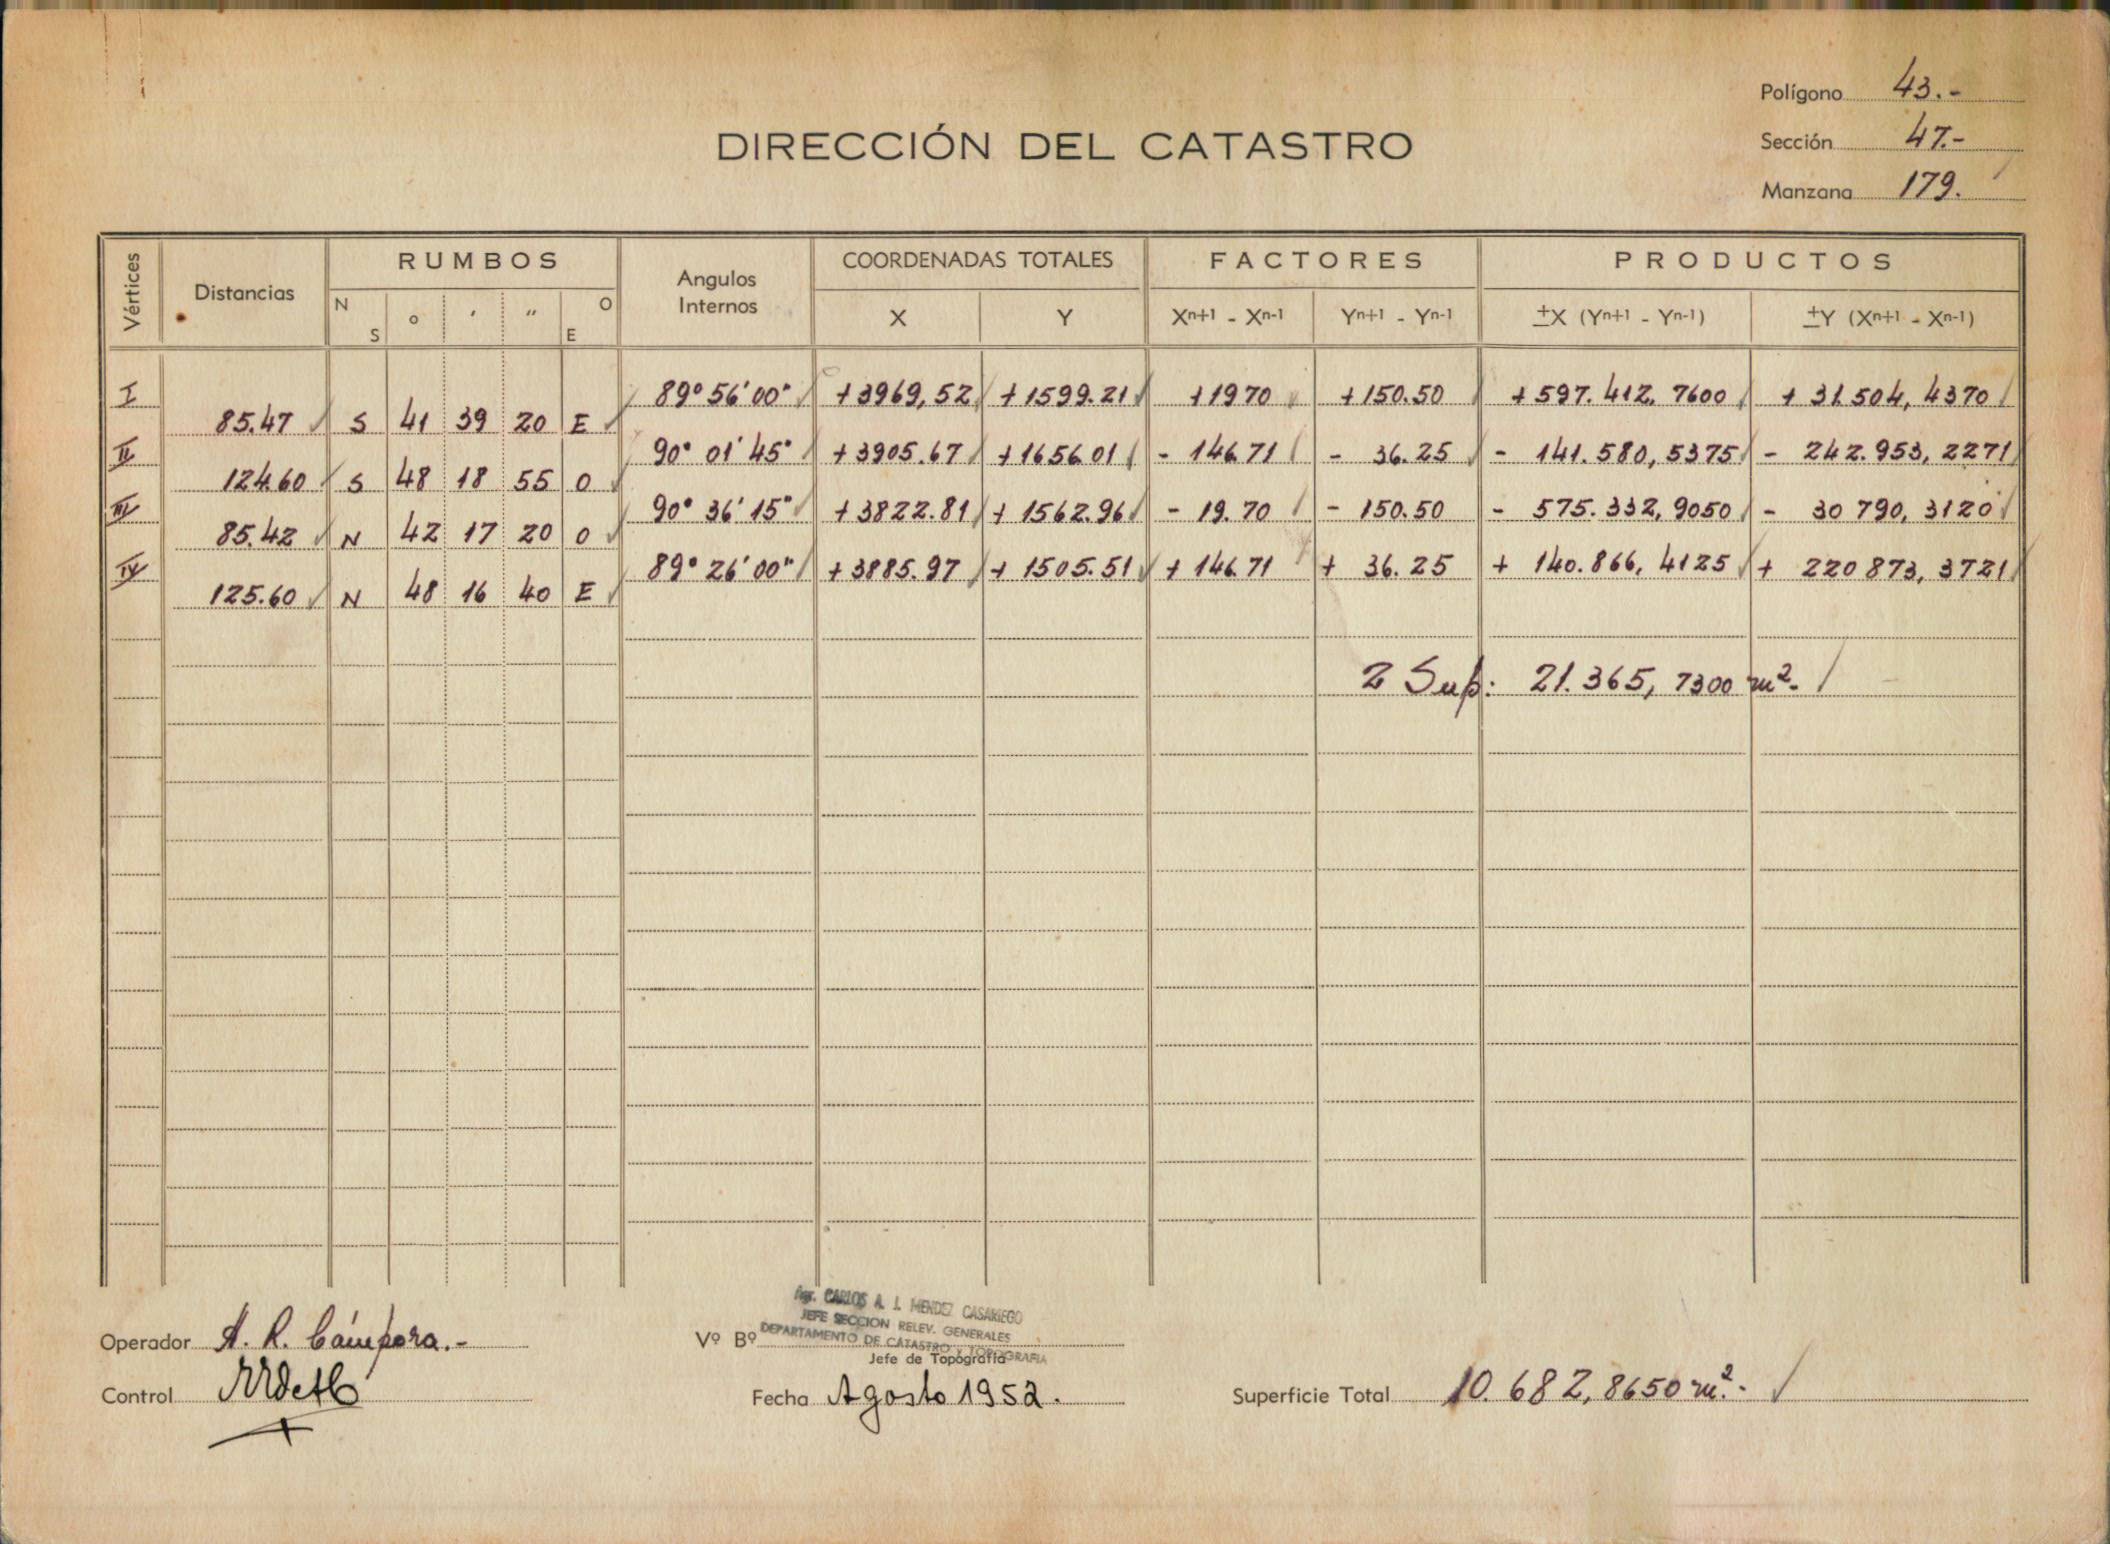 Polígono 43.-
DIRECCIÓN DEL CATASTRO
Sección 47.-
Manzana 179.
Vértices Distancias RUMBOS Angulos Internos COORDENADAS TOTALES FACTORES PRODUCTOS
N S ° ' " O E X Y Xn+1 - Xn-1 Yn+1 - Yn-1 ±X (Yn+1 - Yn-1) ±Y (Xn+1 - Xn-1)
I 89° 56' 00" +3969,52 +1599.21 +19 70 +150.50 +597.412,7600 +31.504,4370
85.47 S 41 39 20 E
II 90° 01' 45" +3905.67 +1656 01 - 146.71 - 36.25 - 141.580,5375 - 242.953,2271
124.60 S 48 18 55 O
III 90° 36' 15" +3822.81 + 1562.96 - 19.70 - 150.50 - 575.332,9050 - 30 790,3120
85.42 N 42 17 20 O
IV 89° 26' 00" +3885.97 + 1505.51 + 146.71 + 36.25 + 140.866,4125 + 220 873,3721
125.60 N 48 16 40 E
2 Sup: 21.365,7300 m².-
Agr. CARLOS A. J. MENDEZ CASARIEGO
JEFE SECCION RELEV. GENERALES
DEPARTAMENTO DE CATASTRO Y TOPOGRAFIA
Operador A. R. Cámpora.- Vº Bº
Jefe de Topografía
Control Fecha Agosto 1952. Superficie Total 10.682,8650 m².-